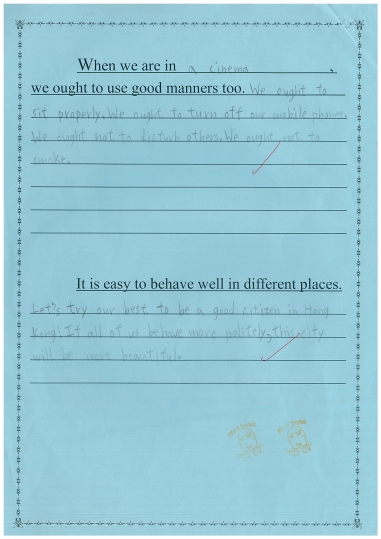 When we are in a cinema,
we ought to use good manners too. We ought to
sit properly. We ought to turn off our mobile phones.
We ought not to disturb others. We ought not to
smoke.
It is easy to behave well in different places.
Let's try our best to be a good citizen in Hong
Kong! If all of us behave more politely, this city
will be more beautiful.